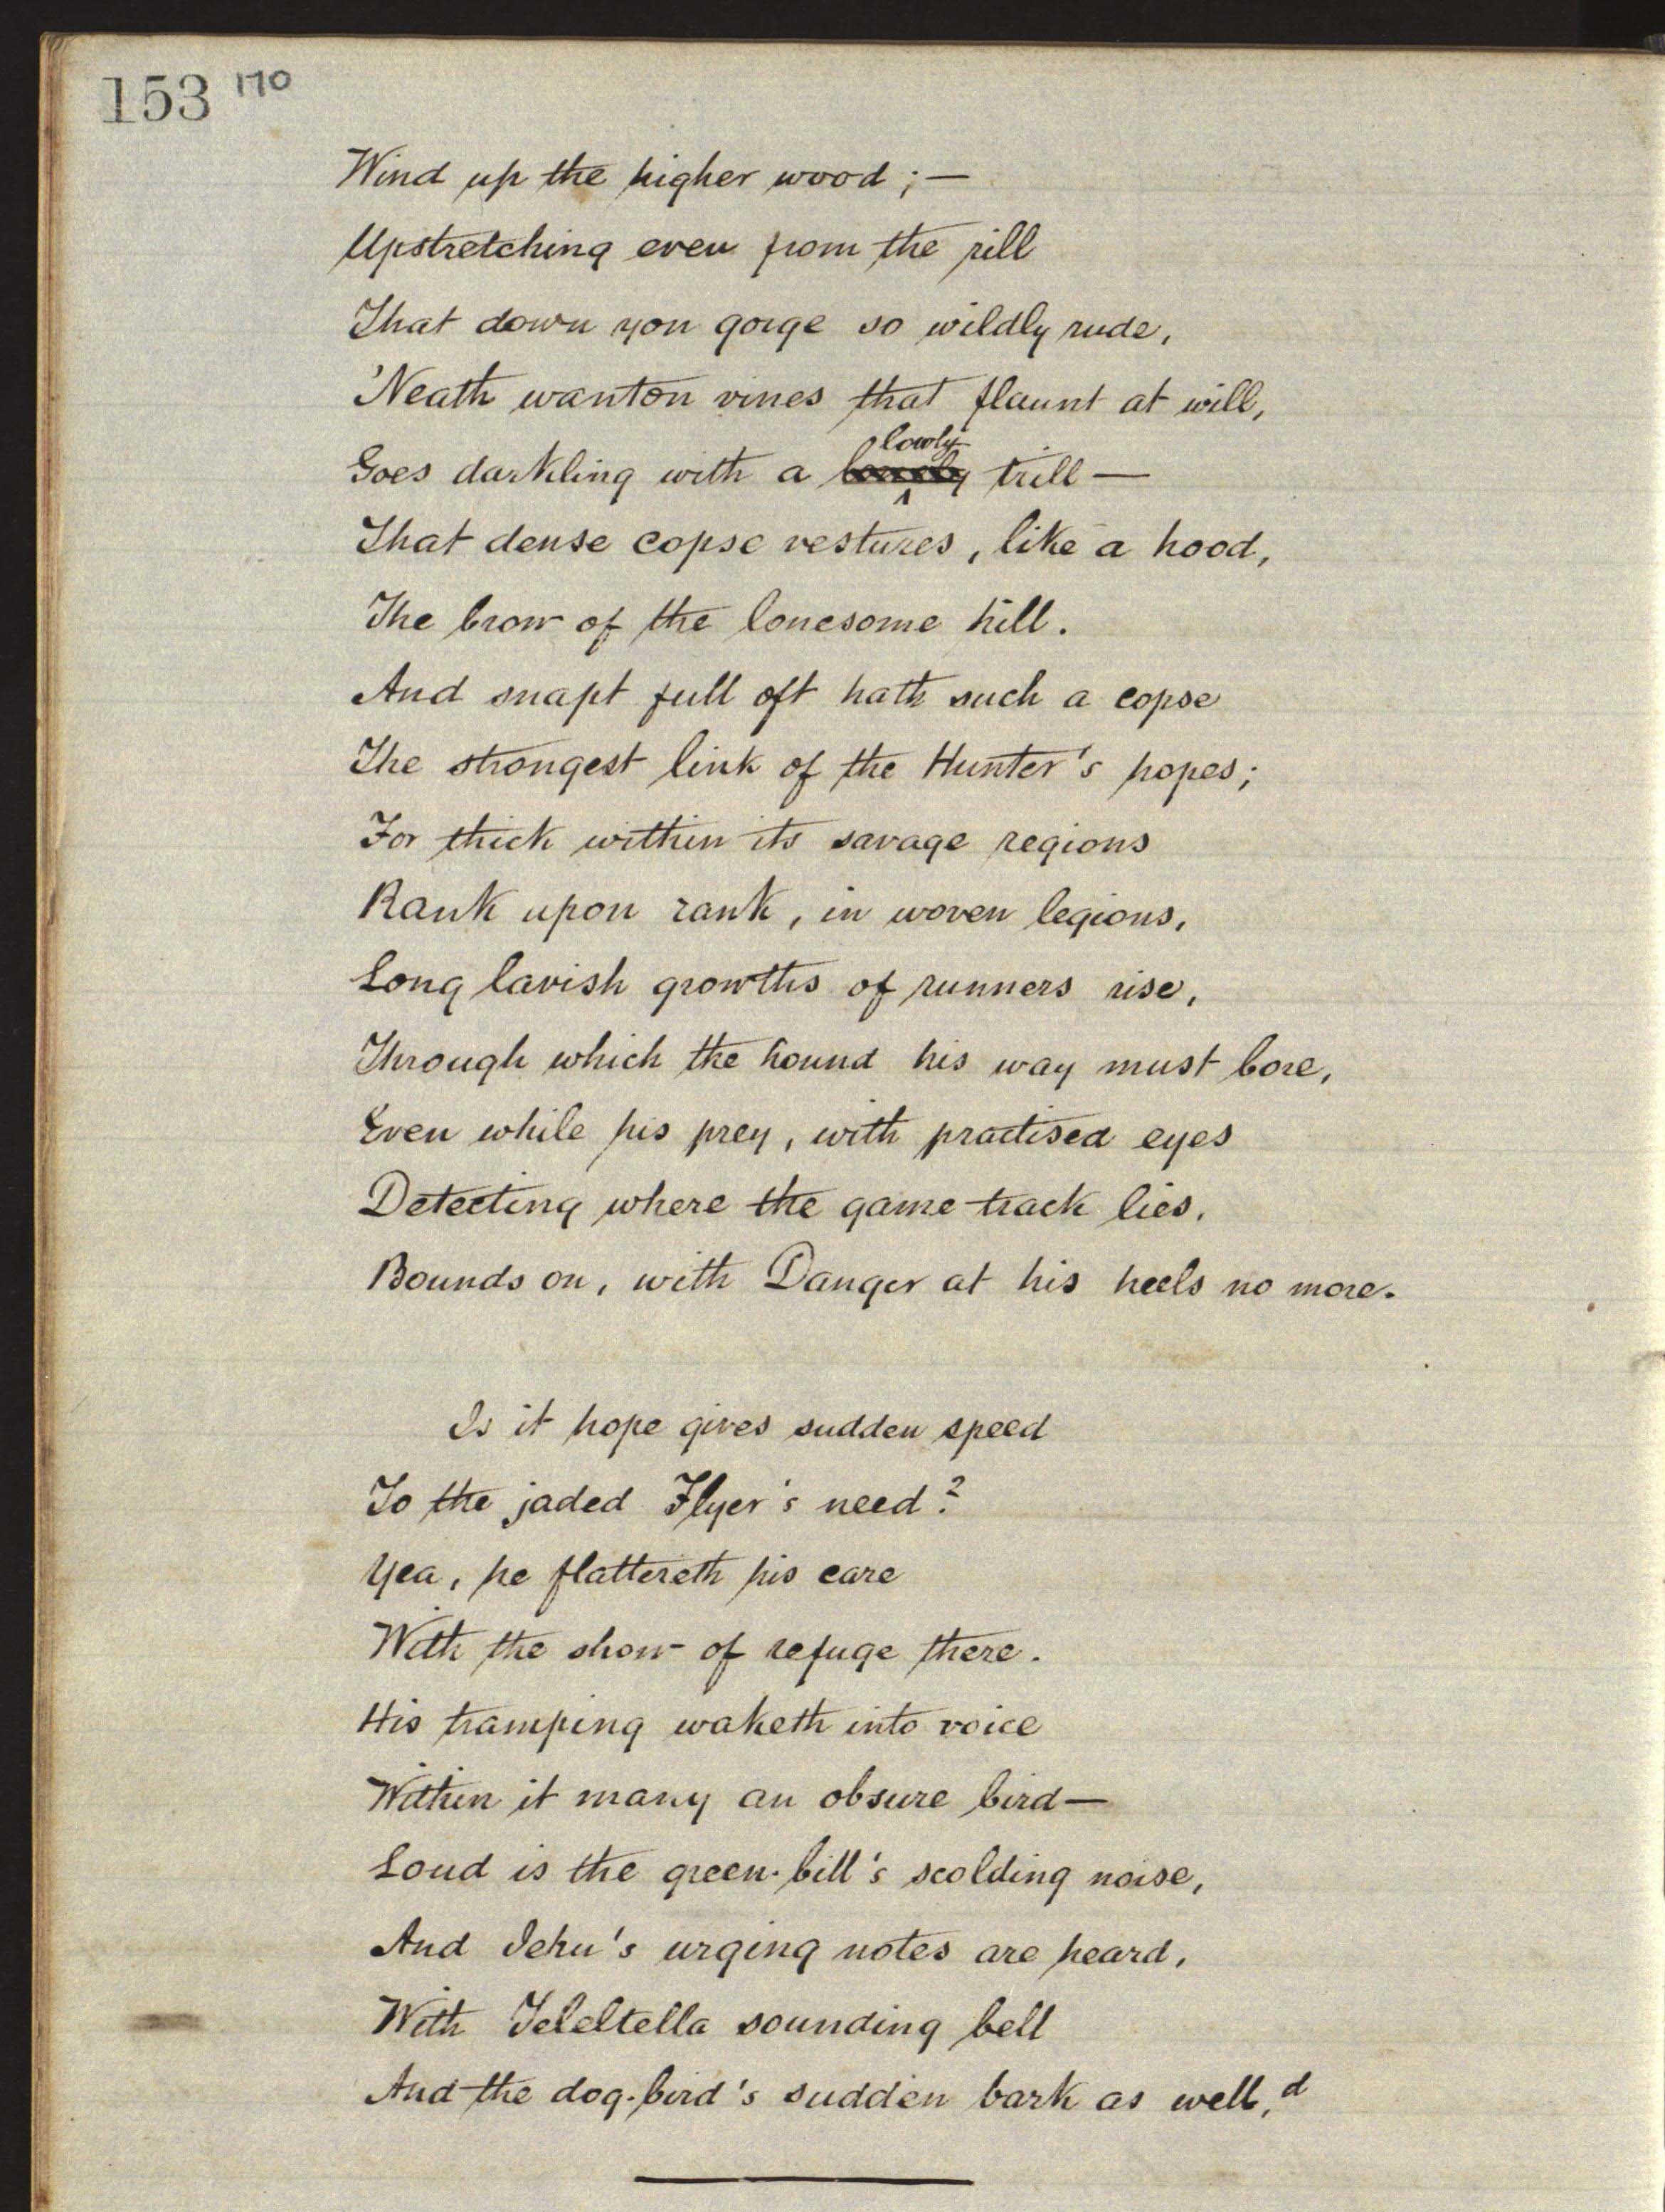 153 170
Wind up the higher wood; —
Upstretching even from the rill
That down yon gorge so wildly rude,
'Neath wanton vines that flaunt at will,
lowly
Goes darkling with a trill —
That dense copse vestures, like a hood,
The brow of the lonesome hill.
And snapt full oft hath such a copse
The strongest link of the Hunter's hopes;
For thick within its savage regions
Rank upon rank, in woven legions,
Long lavish growths of runners rise,
Through which the hound his way must bore,
Even while his prey, with practised eyes
Detecting where the game-track lies,
Bounds on, with Danger at his heels no more.
Is it hope gives sudden speed
To the jaded Flyer's need?
Yea, he flattereth his care
With the show of refuge there.
His tramping waketh into voice
Within it many an obsure bird —
Loud is the green-bill's scolding noise,
And Jehu's urging notes are heard,
With Teleltella sounding bell
And the dog-bird's sudden bark as well, d